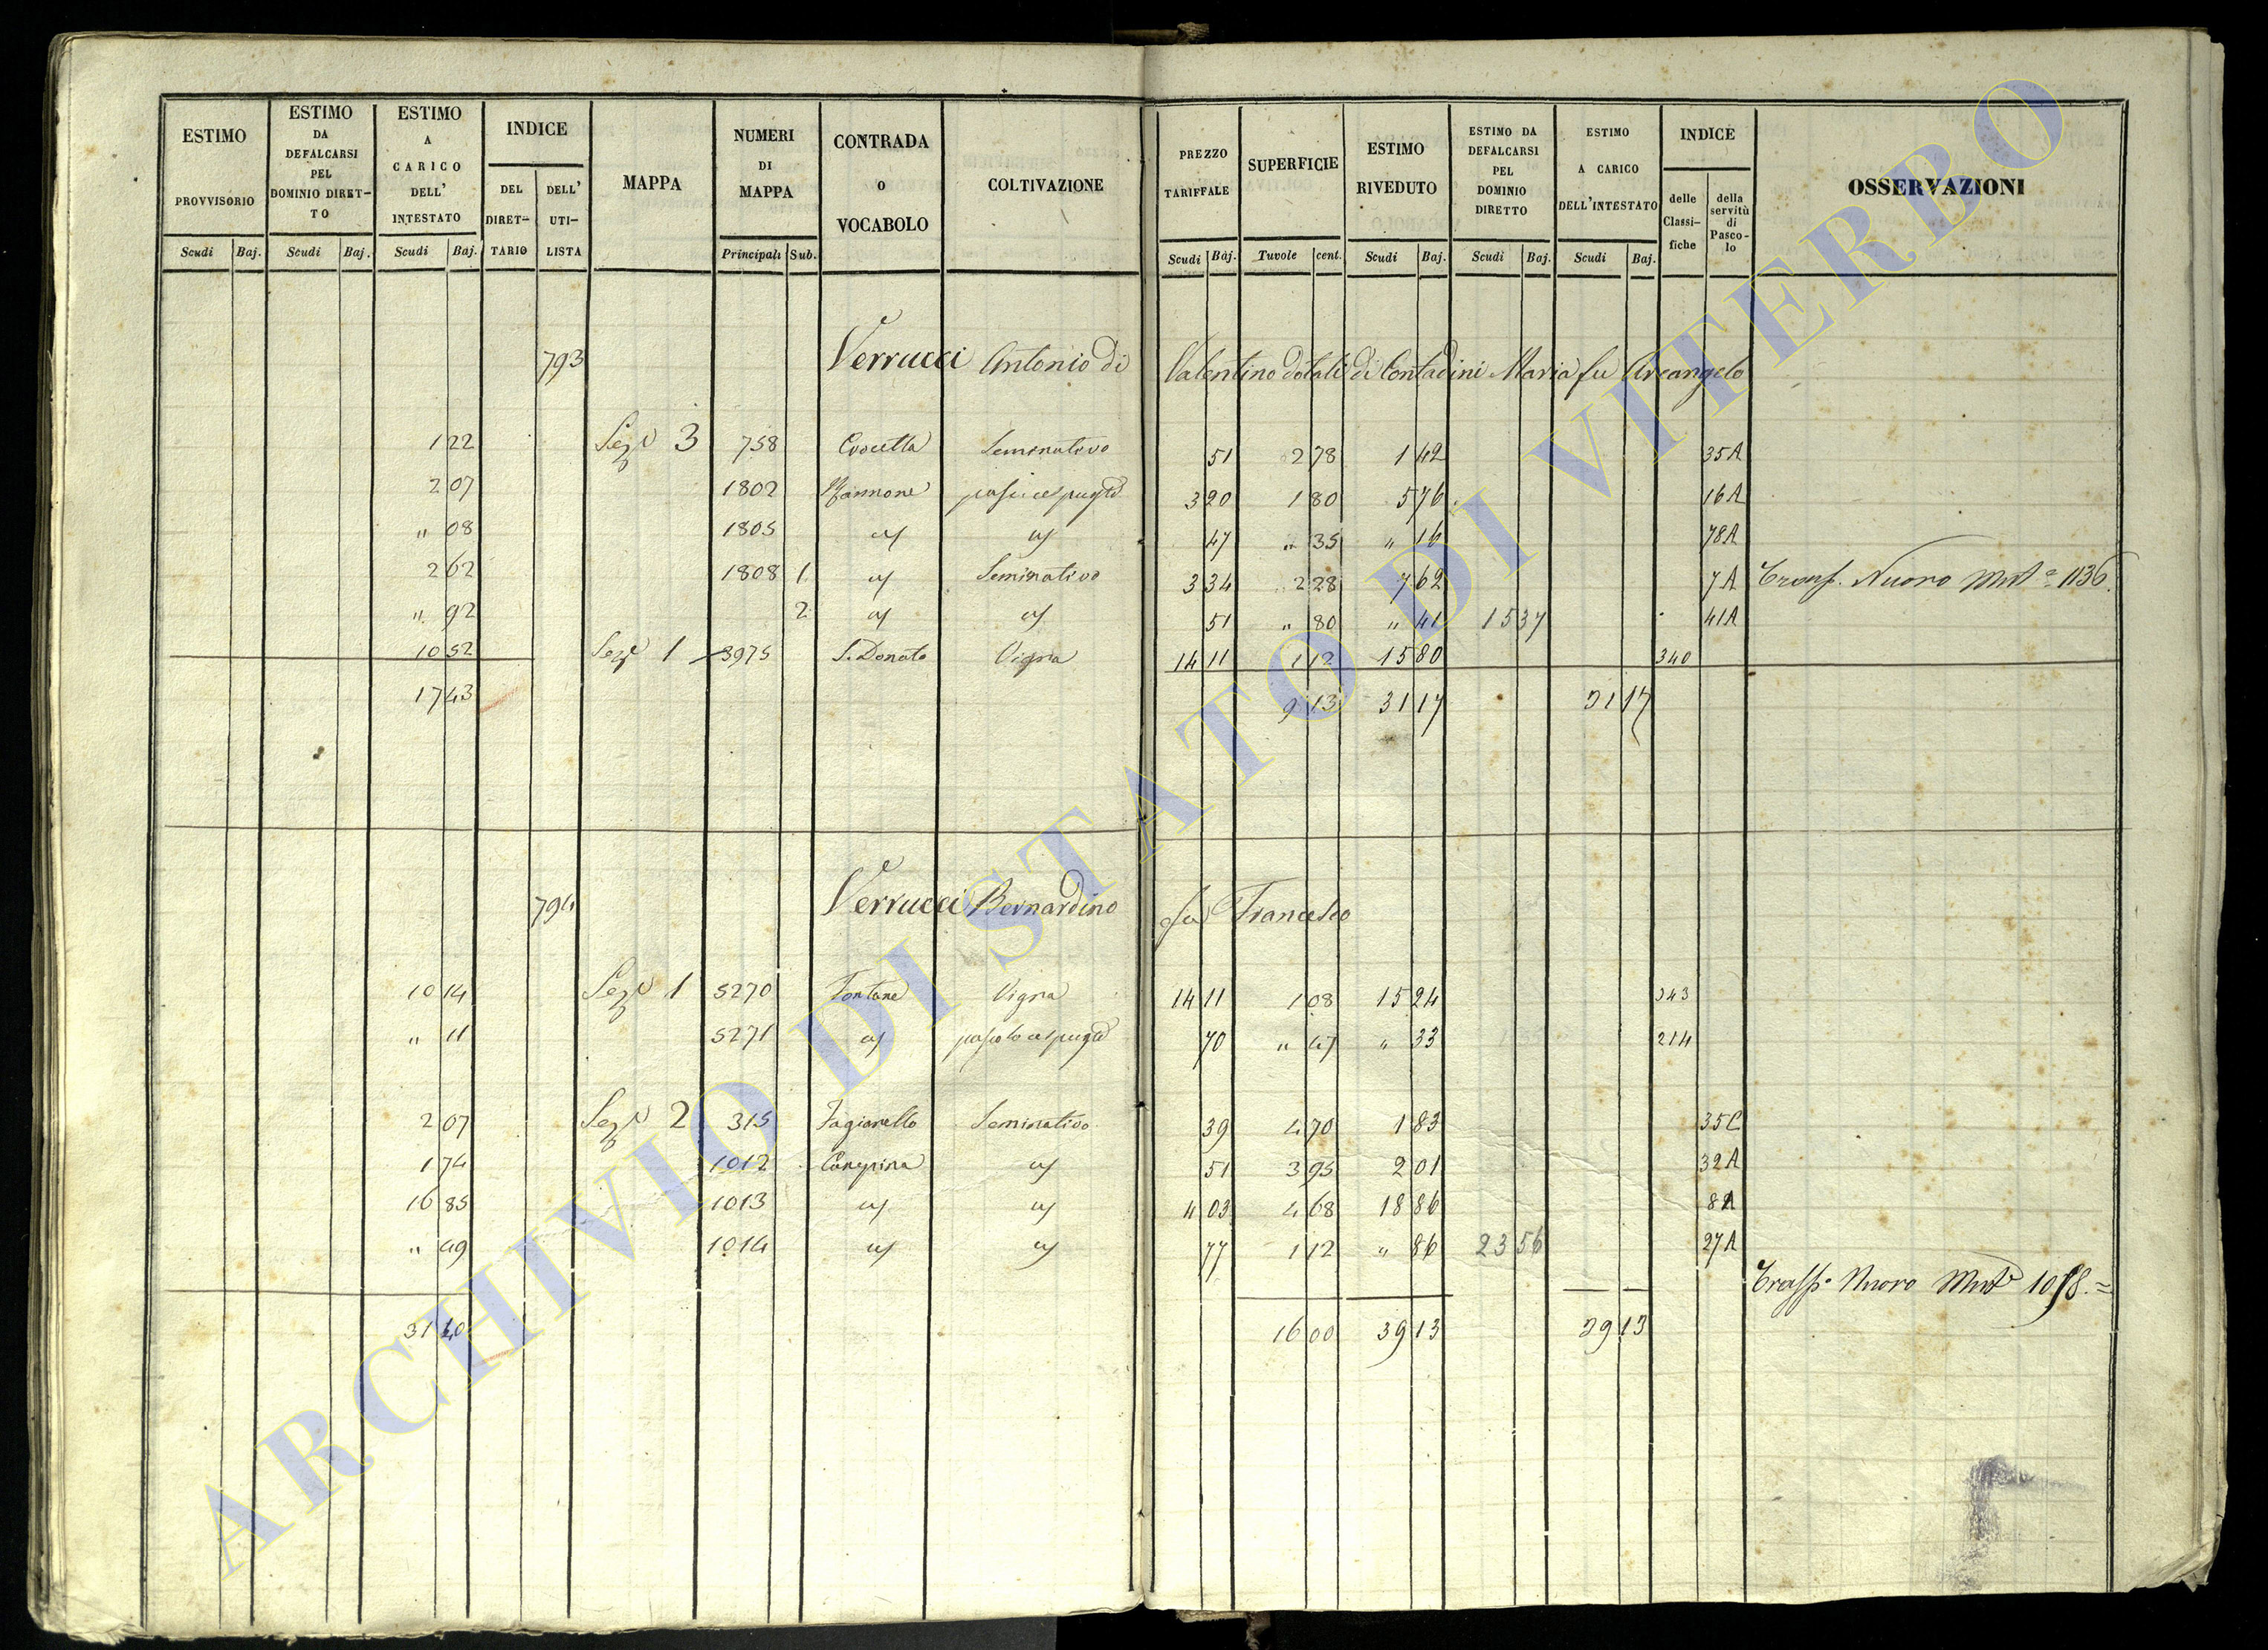 ESTIMO PROVVISORIO Scudi Baj.
ESTIMO DA DEFALCARSI PEL DOMINIO DIRET- TO Scudi Baj.
ESTIMO A CARICO DELL' INTESTATO Scudi Baj.
INDICE DEL DIRET- TARIO DELL' UTI- LISTA
MAPPA
NUMERI DI MAPPA Principali Sub.
CONTRADA O VOCABOLO
COLTIVAZIONE
PREZZO TARIFFALE Scudi Baj.
SUPERFICIE Tavole cent.
ESTIMO RIVEDUTO Scudi Baj.
ESTIMO DA DEFALCARSI PEL DOMINIO DIRETTO Scudi Baj.
ESTIMO A CARICO DELL'INTESTATO Scudi Baj.
INDICE delle Classi- fiche della servitù di Pasco- lo
OSSERVAZIONI
793 Verrucci Antonio di Valentino dotali di Contadini Maria fu Arcangelo
1 22 3 758 Seminativo 51 2 78 1 42 35A
2 07 1802 3 20 1 80 5 76 16A
" 08 1805 47 " 35 " 16 78A
2 62 1808 1 Seminativo 3 34 2 28 7 62 7A Nuovo 1136
" 92 2 51 " 80 " 41 15 37 41A
10 52 1 3975 S. Donato Vigna 14 11 1 12 15 80 340
17 43 9 13 31 17 31 17
794 Verrucci Bernardino fu Francesco
10 14 1 5270 Fontane Vigna 14 11 1 08 15 24 343
" 11 5271 70 " 47 " 33 214
2 07 2 315 Fagianello Seminativo 39 4 70 1 83 35C
1 74 1012 Canepina 51 3 95 2 01 32A
16 85 1013 4 03 4 68 18 86 8A
" 49 1014 77 1 12 " 86 23 56 27A
Nuovo
31 40 16 00 39 13 39 13
ARCHIVIO DI STATO DI VITERBO